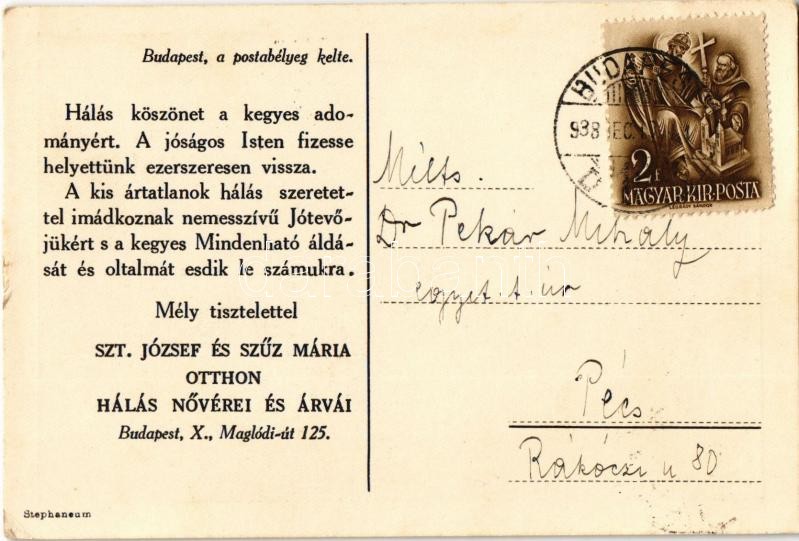 Budapest, a postabélyeg kelte.
Hálás köszönet a kegyes ado-
mányért. A jóságos Isten fizesse
helyettünk ezerszeresen vissza.
A kis ártatlanok hálás szeretet-
tel imádkoznak nemesszívű Jótevő-
jükért s a kegyes Mindenható áldá-
sát és oltalmát esdik le számukra.
Mély tisztelettel
SZT. JÓZSEF ÉS SZŰZ MÁRIA
OTTHON
HÁLÁS NŐVÉREI ÉS ÁRVÁI
Budapest, X., Maglódi-út 125.
Stephaneum
BUDAPEST
938 DEC.
2 f
MAGYAR·KIR·POSTA
Mélts.
Dr Pekár Mihály
egyet. t. úr
Pécs
Rákóczi u 80
darabanth